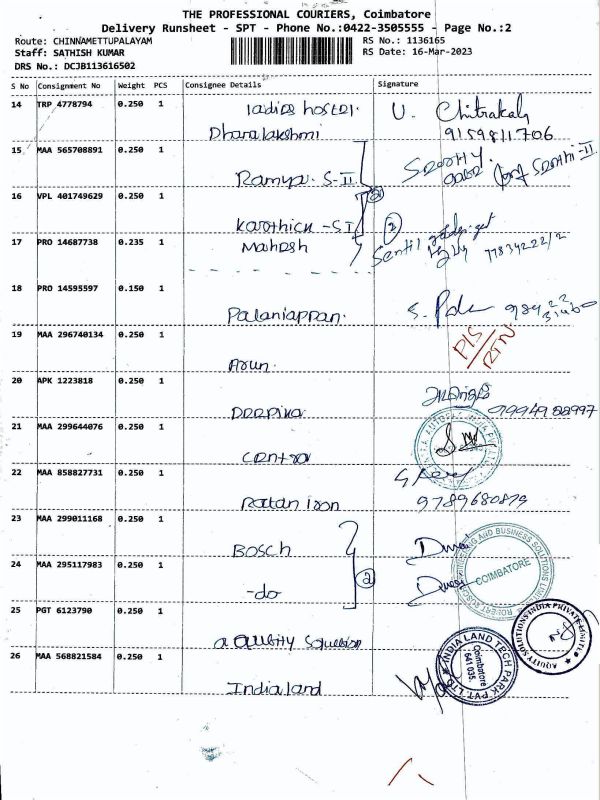 THE PROFESSIONAL COURIERS, Coimbatore
Delivery Runsheet - SPT - Phone No.:0422-3505555 - Page No.:2
Route: CHINNAMETTUPALAYAM
Staff: SATHISH KUMAR
DRS No.: DCJB113616502
RS No.: 1136165
RS Date: 16-Mar-2023
S No Consignment No Weight PCS Consignee Details Signature
14 TRP 4778794 0.250 1 ladies hostel. U. Chitrakala
Dhanalakshmi 9159811706
15 MAA 565708891 0.250 1
Ramya. S-II
16 VPL 401749629 0.250 1
Karthick -S I 2
17 PRO 14687738 0.235 1 Mahesh
18 PRO 14595597 0.150 1
Palaniappan.
19 MAA 296740134 0.250 1
Arun.
20 APK 1223818 0.250 1
Deepika
21 MAA 299644076 0.250 1
22 MAA 858827731 0.250 1
Ratan iron 9789680879
23 MAA 299011168 0.250 1
BOSCH
24 MAA 295117983 0.250 1
-do 2
COIMBATORE
25 PGT 6123790 0.250 1
AQUITY SOLUTIONS INDIA PRIVATE LIMITED
26 MAA 568821584 0.250 1
Indialand
INDIA LAND TECH PARK PVT LTD
Coimbatore
641 035.